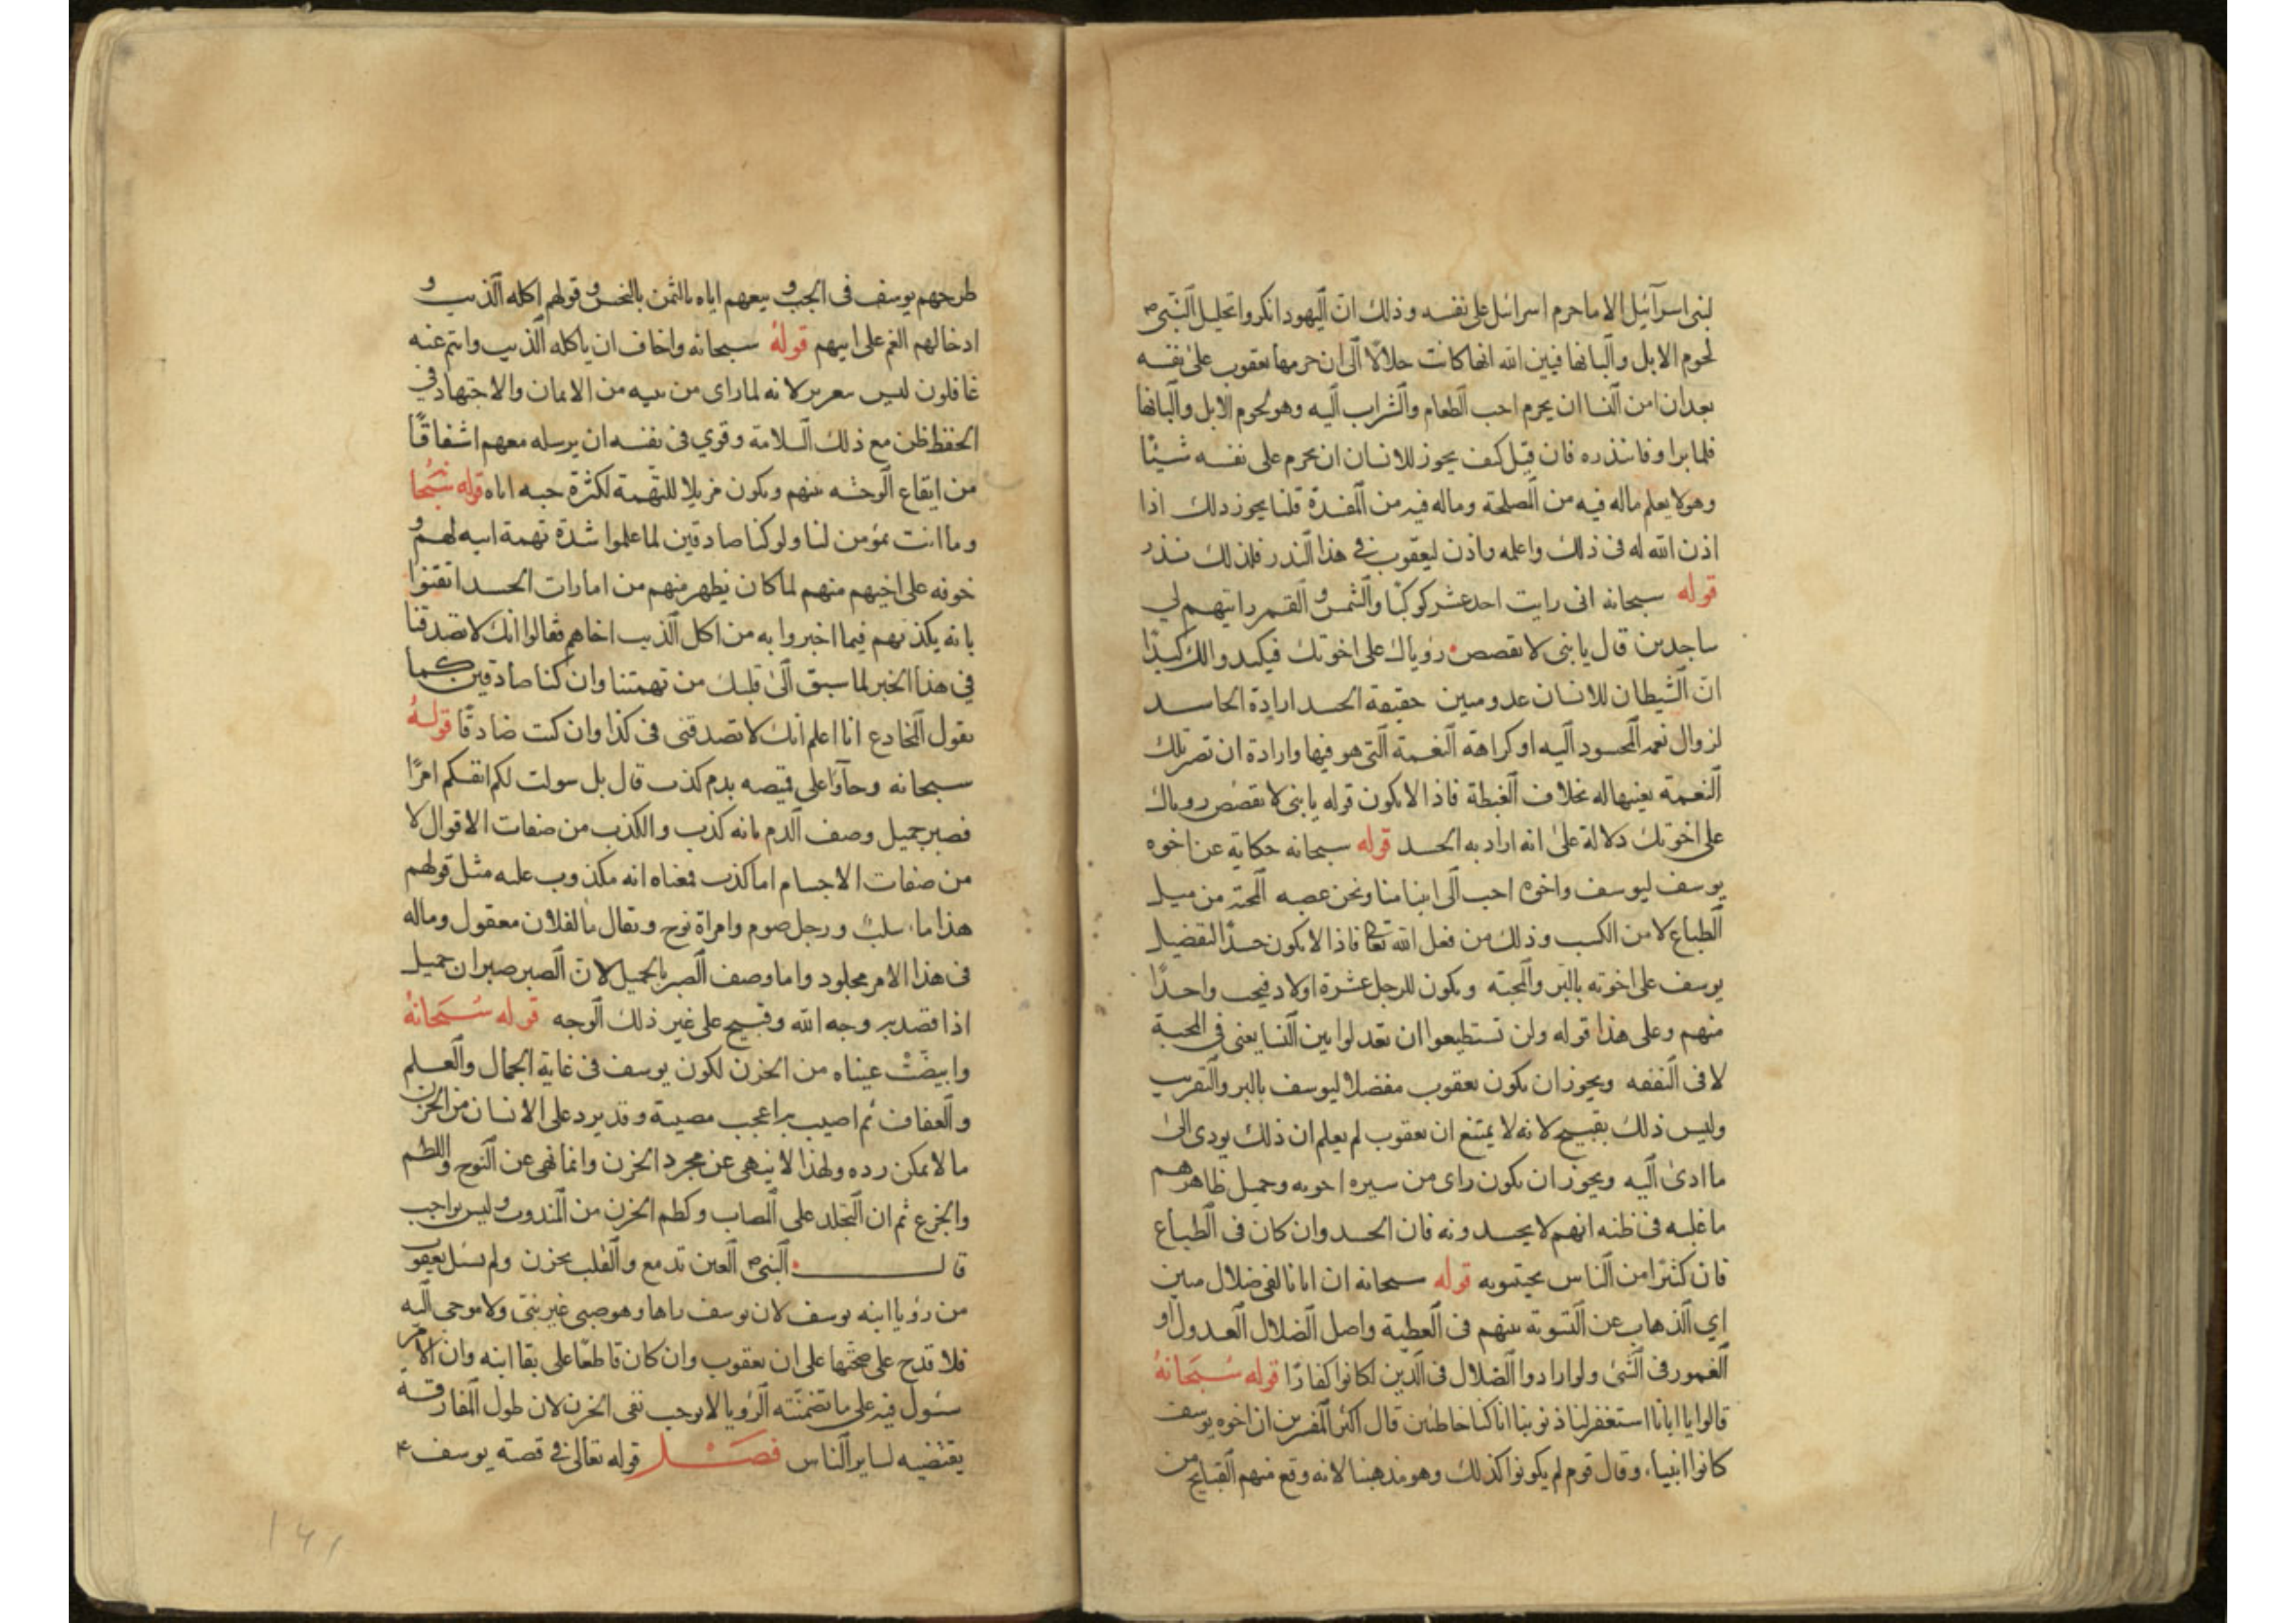 لبنى اسرآئيل الا ما حرم اسرائيل على نفسه وذلك انّ اليهود انكروا تحليل النّبى ص
لحوم الابل والبانها فبين الله انها كانت حلالًا الى ان حرمها يعقوب على نفسه
بعد ان امن النسا ان يحرم احب الطعام والشراب اليه وهو لحوم الابل والبانها
فلما برا وفا بنذره فان قيل كيف يجوز للانسان ان يحرم على نفسه شيئًا
وهو لا يعلم ماله فيه من المصلحة وماله فيه من المفسدة قلنا يجوز ذلك اذا
اذن الله له فى ذلك واعلمه واذن ليعقوب فى هذا النذر فلذلك نذر
قوله سبحانه انى رايت احد عشر كوكبًا والشمس والقمر رايتهم لي
ساجدين قال يا بنى لا تقصص رؤياك على اخوتك فيكيدوا لك كيدًا
انّ الشيطان للانسان عدو مبين حقيقة الحسد ارادة الحاسد
لزوال نعم المحسود اليه او كراهة النعمة التى هو فيها وارادة ان تصير تلك
النعمة بعينها له بخلاف الغبطة فاذا لا يكون قوله يا بنى لا تقصص روياك
على اخوتك دلالة على انه اراد به الحسد قوله سبحانه حكاية عن اخوه
يوسف ليوسف واخوه احب الى ابينا منا ونحن عصبه المحبة من ميل
الطباع لا من الكسب وذلك من فعل الله تعالى فاذا لا يكون حسدًا لتفضيل
يوسف على اخوته بالبر والمحبته ويكون للرجل عشرة اولاد فيحب واحدًا
منهم وعلى هذا قوله ولن تستطيعوا ان تعدلوا بين النسا يعنى فى المحبة
لا فى النفقه ويجوز ان يكون يعقوب مفضلا ليوسف بالبر والتقريب
وليس ذلك بقبيح لانه لا يمتنع ان يعقوب لم يعلم ان ذلك يودى الى
ما ادى اليه ويجوز ان يكون راى من سيره اخوته وجميل ظاهرهم
ما غلب فى ظنه انهم لا يحسدونه فان الحسد وان كان فى الطباع
فان كثيرًا من الناس يجتنبونه قوله سبحانه ان ابانا لفى ضلال مبين
اي الذهاب عن التسوية بينهم فى العطية واصل الضلال العدول او
الغمور فى الشئ ولو ارادوا الضلال فى الدين لكانوا كفارًا قوله سُبحانهُ
قالوا يا ابانا استغفر لنا ذنوبنا انا كنا خاطئين قال اكثر المفسرين ان اخوه يوسف
كانوا انبياء وقال قوم لم يكونوا كذلك وهو مذهبنا لانه وقع منهم القبايح من
طرحهم يوسف فى الجب و بيعهم اياه بالثمن بالبخس و قولهم اكله الذيب و
ادخالهم الغم على ابيهم قولهُ سبحانه واخاف ان ياكله الذيب وانتم عنه
غافلون ليس بعرير لانه لما راى من بنيه من الايمان والاجتهاد في
الحفظ ظن مع ذلك السلامة وقوي فى نفسه ان يرسله معهم اشفاقًا
من ايقاع الوحشه بينهم ويكون مزيلا للتهمة لكثرة حبه اياه قوله سُبحا
وما انت بمؤمن لنا ولو كنا صادقين لما علموا شدة تهمة ابيه لهم و
خوفه على اخيهم منهم لما كان يظهر منهم من امارات الحسد اتقنوا
بانه يكذبهم فيما اخبروا به من اكل الذيب اخاهم فقالوا انك لا تصدقنا
في هذا الخبر لما سبق الى قلبك من تهمتنا وان كنا صادقين كما
يقول المخادع انا اعلم انك لا تصدقنى فى كذا وان كنت صادقًا قولهُ
سبحانه وجآؤا على قميصه بدم كذب قال بل سولت لكم انفسكم امرًا
فصبر جميل وصف الدم بانه كذب والكذب من صفات الاقوال لا
من صفات الاجسام اما كذب فمعناه انه مكذوب عليه مثل قولهم
هذا ماء سكب ورجل صوم وامراة نوح ويقال ما لفلان معقول وماله
فى هذا الامر مجلود واما وصف الصبر بالجميل لان الصبر صبران جميل
اذا قصد به وجه الله وقبيح على غير ذلك الوجه قوله سُبحانهُ
وابيضّتْ عيناه من الحزن لكون يوسف فى غاية الجمال والعلم
والعفاف ثم اصيب به اعجب مصيبة وقد يرد على الانسان من الحزن
ما لا يمكن رده ولهذا لا ينهى عن مجرد الحزن وانما نهى عن النوح واللطم
والجزع ثم ان التجلد على المصاب وكظم الحزن من المندوب وليس بواجب
قال النبى ص العين تدمع والقلب يحزن ولم يسل يعقوب
من رؤيا ابنه يوسف لان يوسف راها وهو صبى غير بنى ولا موحى اليه
فلا قدح على صحتها على ان يعقوب وان كان قاطعًا على بقا ابنه وان الامر
سئول فيه على ما تضمنته الرؤيا لا يوجب نفى الحزن لان طول المفارقة
يقتضيه لساير الناس فصل قوله تعالى فى قصة يوسف ع